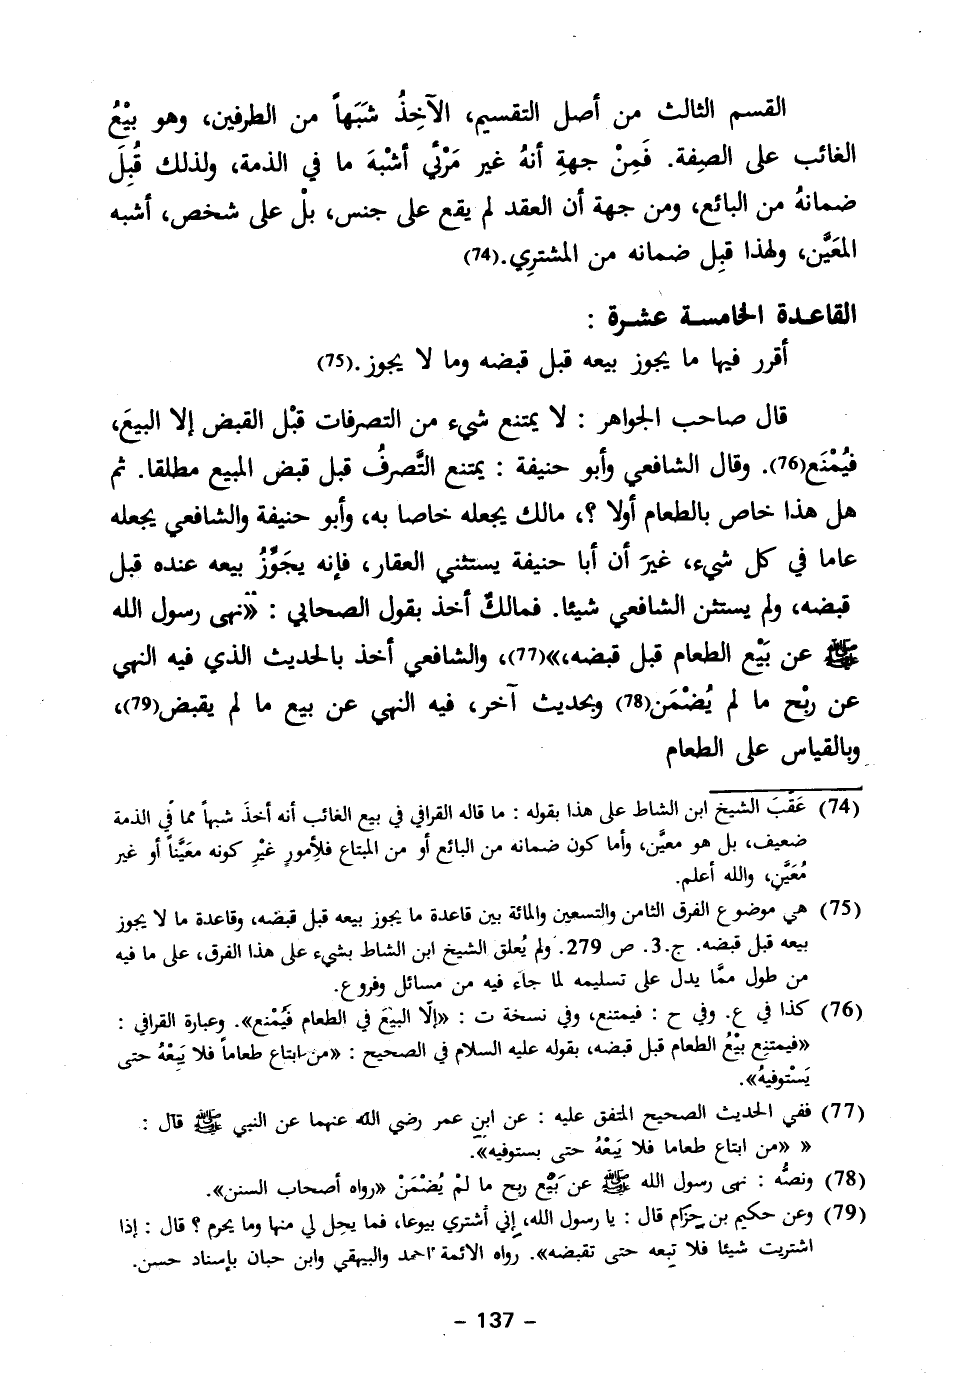 القسم الثالث من أصل التقسيم، الآخِذُ شَبَهاً من الطرفين، وهو بيْعُ
الغائب على الصِفة. فَمِنْ جهةِ أنهُ غير مَرْئي أشْبهَ ما في الذمة، ولذلك قُبِلَ
ضمانهُ من البائع، ومن جهة أن العقد لم يقع على جنس، بلْ على شخص، أشبه
المعَيَّن، ولهذا قبِل ضمانه من المشترِي.(74)
القاعدة الخامسة عشرة :
أقرر فيها ما يجوز بيعه قبل قبضه وما لا يجوز.(75)
قال صاحب الجواهر : لا يمتنع شيء من التصرفات قبْل القبض إلا البيعَ،
فيُمْنَع(76). وقال الشافعي وأبو حنيفة : يمتنع التَّصرفُ قبل قبض المبيع مطلقا. ثم
هل هذا خاص بالطعام أولا ؟، مالك يجعله خاصا به، وأبو حنيفة والشافعي يجعله
عاما في كل شيء، غيرَ أن أبا حنيفة يستثني العقار، فإنه يجَوِّزُ بيعه عنده قبل
قبضه، ولم يستثن الشافعي شيئا. فمالكٌ أخذ بقول الصحابي : «نهى رسول الله
ﷺ عن بَيْع الطعام قبل قبضه،»(77)، والشافعي أخذ بالحديث الذي فيه النهي
عن ربْح ما لم يُضْمَن(78) وبحديث آخر، فيه النهي عن بيع ما لم يقبض(79)،
وبالقياس على الطعام
(74) عَقَّبَ الشيخ ابن الشاط على هذا بقوله : ما قاله القرافي في بيع الغائب أنه أخذَ شبهاً مما في الذمة
ضعيف، بل هو معيَّن، وأما كون ضمانه من البائع أو من المبتاع فلِأمورٍ غيْرِ كونه معيَّناً أو غير
مُعَيَّنٍ، والله أعلم.
(75) هي موضوع الفرق الثامن والتسعين والمائة بين قاعدة ما يجوز بيعه قبل قبضه، وقاعدة ما لا يجوز
بيعه قبل قبضه. ج.3. ص 279. ولم يُعلق الشيخ ابن الشاط بشيء على هذا الفرق، على ما فيه
من طول ممَّا يدل على تسليمه لما جاء فيه من مسائل وفروع.
(76) كذا في ع. وفي ح : فيمتنع، وفي نسخة ت : «إلّا البيْعَ في الطعام فيُمْنع». وعبارة القرافي :
«فيمتنِع بيْعُ الطعام قبل قبضه، بقوله عليه السلام في الصحيح : «من ابتاع طعاماً فلا يَبِعْهُ حتى
يَسْتوفيهُ».
(77) ففي الحديث الصحيح المتفق عليه : عن ابن عمر رضي الله عنهما عن النبي ﷺ قال :
« «من ابتاع طعاما فلا يَبِعْهُ حتى يستوفيه».
(78) ونصُّه : نهى رسول الله ﷺ عن بَيْع ربح ما لمْ يُضْمَنْ «رواه أصحاب السنن».
(79) وعن حكيم بن حِزام قال : يا رسول الله، إني أشتري بيوعا، فما يحل لي منها وما يحرم ؟ قال : إذا
اشتريت شيئا فلا تبِعه حتى تقبضه». رواه الائمة احمد والبيهقي وابن حبان بإسناد حسن.
- 137 -